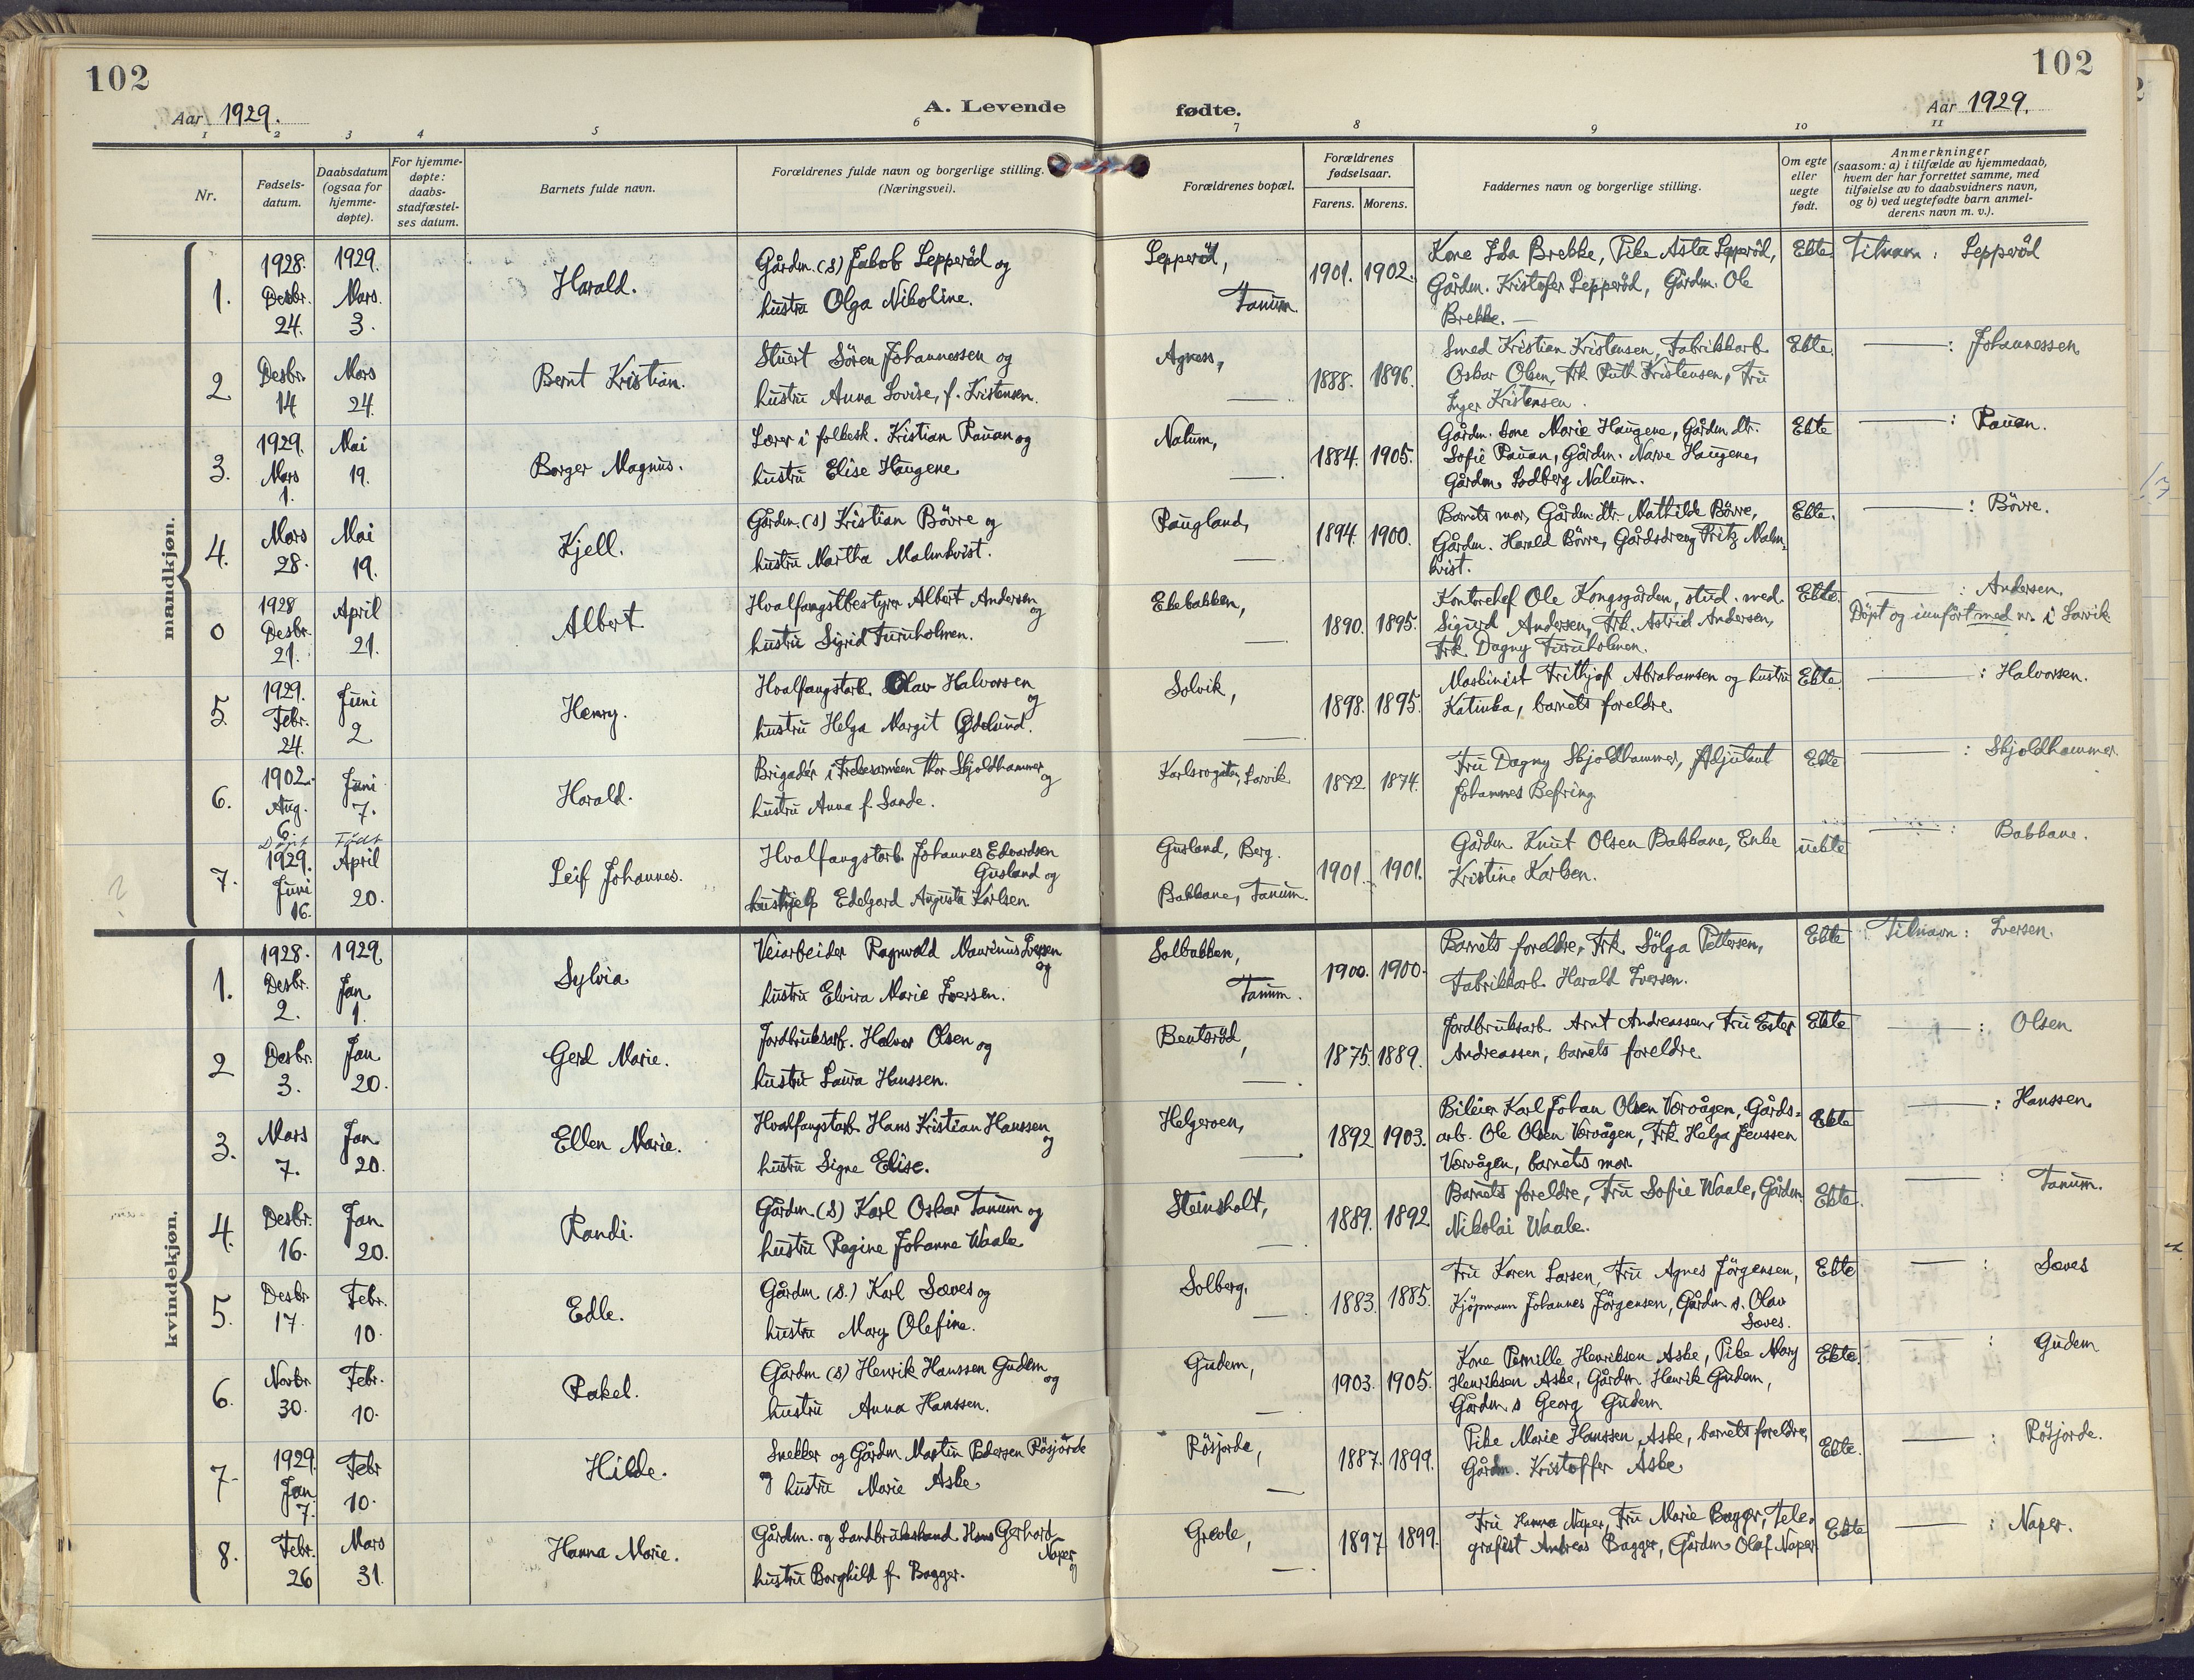 102
Aar 1929.
A. Levende
fødte.
102
Aar 1929.
1 2 3 4 5 6 7 8 9 10 11
Nr.
Fødsels-
datum.
Daabsdatum
(ogsaa for
hjemme-
døpte).
For hjemme-
døpte:
daabs-
stadfæstel-
ses datum.
Barnets fulde navn.
Forældrenes fulde navn og borgerlige stilling.
(Næringsvei).
Forældrenes bopæl.
Forældrenes
fødselsaar.
Farens. Morens.
Faddernes navn og borgerlige stilling.
Om egte
eller
uegte
født.
Anmerkninger
(saasom: a) i tilfælde av hjemmedaab,
hvem der har forrettet samme, med
tilføielse av to daabsvidners navn,
og b) ved uegtefødte barn anmel-
derens navn m. v.).
mandkjøn.
1.
1928.
Desbr.
24.
1929.
Mars.
3.
Harald.
Gårdm. (s) Jakob Lepperöd og
hustru Olga Nikoline.
Lepperöd,
Tanum.
1901. 1902.
Kone Ida Brekke, Pike Asta Lepperöd,
Gårdm. Kristofer Lepperöd, Gårdm. Ole
Brekke. —
Ekte.
Tilnavn : Lepperöd
2
Desbr.
14
Mars
24.
Bernt Kristian.
Stuert Sören Johannessen og
hustru Anna Lovise, f. Kristensen.
Agness,
— .
1888. 1896.
Smed Kristian Kristensen, Fabrikkarb.
Oskar Olsen, Frk Ruth Kristensen, Fru
Inger Kristensen.
Ekte.
— : Johannessen
3.
1929.
Mars
1.
Mai
19.
Borger Magnus.
Lærer i folkesk. Kristian Rauan og
hustru Elise Haugene
Nalum,
— .
1884. 1905.
Gårdm. kone Marie Haugene, Gårdm. dtr.
Sofie Rauan, Gårdm. Narve Haugene,
Gårdm. Lodberg Nalum.
Ekte
— : Rauan.
4.
Mars
28.
Mai
19.
Kjell.
Gårdm. (s) Kristian Bövre og
hustru Martha Malmkvist.
Raugland,
—
1894. 1900.
Barnets mor, Gårdm. dtr. Mathilde Bövre,
Gårdm. Harald Bövre, Gårdsdreng Fritz Malm-
kvist.
Ekte.
— : Bövre.
0
1928
Desbr.
21.
April
21.
Albert
Hvalfangstbestyrer Albert Andersen
og
hustru Sigrid Furuholmen.
Ekebakken,
—
1890. 1895.
Kontorchef Ole Kongsgården, stud. med.
Sigurd Andersen, Frk. Astrid Andersen,
Frk. Dagny Furuholmen.
Ekte.
— : Andersen.
Döpt og innfört med nr. i Larvik
5.
1929.
Febr.
24.
Juni
2
Henry.
Hvalfangstarb. Olav Halvorsen
og
hustru Helga Margit Ödelund.
Solvik,
— .
1898. 1895.
Maskinist Frithjof Abrahamsen og hustru
Katinka, barnets foreldre
Ekte.
— : Halvorsen.
6.
1902.
Aug.
6.
Juni
7.
Harald.
Brigadér i Frelsesarméen Thor Skjoldhammer
og
hustru Anna f. Sande.
Karlsrogaten, Larvik
1872. 1874.
Fru Dagny Skjoldhammer, Adjutant
Johannes Befring
Ekte
— : Skjoldhammer.
?
7.
Döpt
1929.
Juni
16.
Født
April
20.
Leif Johannes.
Hvalfangstarb. Johannes Edvardsen
Gusland og
hushjelp Edelgard Augusta Karlsen
Gusland, Berg.
Bakkane, Tanum.
1901. 1901.
Gårdm Knut Olsen Bakkane, Enke
Kristine Karlsen.
uekte
— : Bakkane.
kvindekjøn.
1.
1928.
Desbr.
2.
1929.
Jan.
1.
Sylvia
Veiarbeider Ragnvald Maurinus Iversen
og
hustru Elvira Marie Iversen.
Solbakken,
Tanum.
1900. 1900.
Barnets foreldre, Frk. Sölga Pettersen,
Fabrikkarb. Harald Iversen.
Ekte
Tilnavn : Iversen.
2
Desbr.
3.
Jan
20.
Gerd Marie.
Jordbruksarb. Halvor Olsen og
hustru Laura Hanssen.
Bentsröd,
— .
1875. 1889.
Jordbruksarb. Arnt Andreassen, Fru Ester
Andreassen, barnets foreldre
Ekte
— : Olsen
3.
Mars
7.
Jan
20.
Ellen Marie.
Hvalfangstarb. Hans Kristian Hanssen
og
hustru Signe Elise.
Helgeroen,
— .
1892 1903.
Bileier Karl Johan Olsen Værvågen, Gårds-
arb. Ole Olsen Værvågen, Frk. Helga Jenssen
Værvågen, barnets mor.
Ekte
— : Hanssen
4.
Desbr.
16.
Jan
20.
Randi.
Gårdm. (s) Karl Oskar Tanum og
hustru Regine Johanne Waale
Steinsholt,
— .
1889. 1892
Barnets foreldre, Fru Sofie Waale, Gårdm.
Nikolai Waale.
Ekte.
— : Tanum.
5.
Desbr.
17.
Febr.
10.
Edle.
Gårdm (s.) Karl Sæves og
hustru Mary Olefine.
Solberg,
— .
1883. 1885.
Fru Karen Larsen, Fru Agnes Jörgensen,
Kjöpmann Johannes Jörgensen, Gårdm s. Olav
Sæves.
Ekte
— : Sæves
6.
Novbr.
30.
Febr.
10.
Rakel.
Gårdm (s) Henrik Hanssen Gudem
og
hustru Anna Hanssen.
Gudem,
— .
1903. 1905.
Kone Pernille Henriksen Aske, Pike Mary
Henriksen Aske, Gårdm. Henrik Gudem,
Gårdm. s Georg Gudem
Ekte.
— : Gudem
7.
1929.
Jan.
7.
Febr
10.
Hilde.
Snekker og Gårdm. Martin Pedersen Rösjorde
og hustru Marie Aske
Rösjorde,
— .
1887. 1899.
Pike Marie Hanssen Aske, barnets foreldre,
Gårdm. Kristoffer Aske
Ekte.
— : Rösjorde.
8.
Febr.
26
Mars
31.
Hanna Marie.
Gårdm. og Landbrukskand. Hans Gerhard
Naper
og
hustru Borghild f. Bagger.
Greole,
— .
1897 1899.
Fru Hanna Naper, Fru Marie Bagger, Tele-
grafist Andreas Bagger, Gårdm Olaf Naper
Ekte
— : Naper.